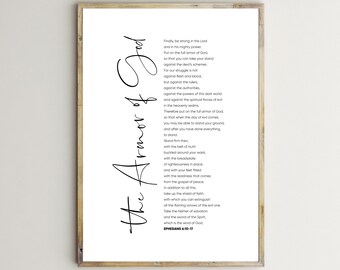 the Armor of God
Finally, be strong in the Lord
and in his mighty power.
Put on the full armor of God,
so that you can take your stand
against the devil's schemes.
For our struggle is not
against flesh and blood,
but against the rulers,
against the authorities,
against the powers of this dark world
and against the spiritual forces of evil
in the heavenly realms.
Therefore put on the full armor of God,
so that when the day of evil comes,
you may be able to stand your ground,
and after you have done everything,
to stand.
Stand firm then,
with the belt of truth
buckled around your waist,
with the breastplate
of righteousness in place,
and with your feet fitted
with the readiness that comes
from the gospel of peace.
In addition to all this,
take up the shield of faith,
with which you can extinguish
all the flaming arrows of the evil one.
Take the helmet of salvation
and the sword of the Spirit,
which is the word of God.
EPHESIANS 6:10-17